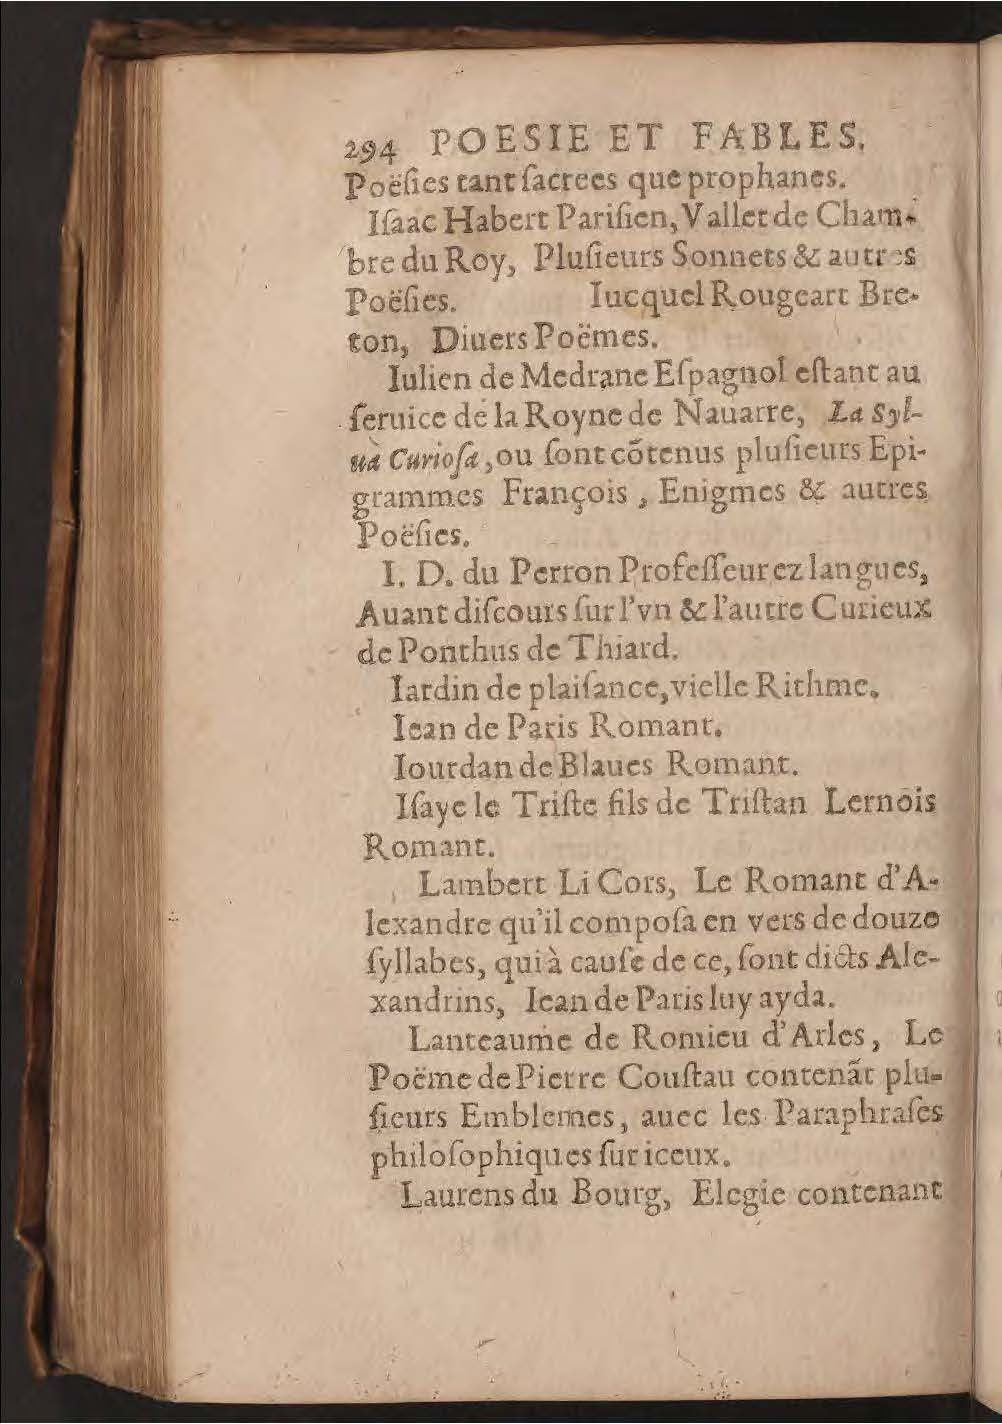 294 POESIE ET FABLES.
Poëſies tant ſacrees que prophanes.
Iſaac Habert Pariſien, Vallet de Cham-
bre du Roy, Pluſieurs Sonnets & autres
Poëſies. Iucquel Rougeart Bre-
ton, Diuers Poëmes.
Iulien de Medrane Eſpagnol eſtant au
ſeruice de la Royne de Nauarre, La Syl-
uà Curioſa, ou ſont cõtenus pluſieurs Epi-
grammes François, Enigmes & autres
Poëſies.
I. D. du Perron Profeſſeur ez langues,
Auant diſcours ſur l'vn & l'autre Curieux
de Ponthus de Thiard.
Iardin de plaiſance, vielle Rithme.
Iean de Paris Romant.
Iourdan de Blaues Romant.
Iſaye le Triſte fils de Triſtan Lernois
Romant.
Lambert Li Cors, Le Romant d'A-
lexandre qu'il compoſa en vers de douze
ſyllabes, qui à cauſe de ce, ſont dicts Ale-
xandrins, Iean de Paris luy ayda.
Lanteaume de Romieu d'Arles, Le
Poëme de Pierre Couſtau contenãt plu-
ſieurs Emblemes, auec les Paraphraſes
philoſophiques ſur iceux.
Laurens du Bourg, Elegie contenant